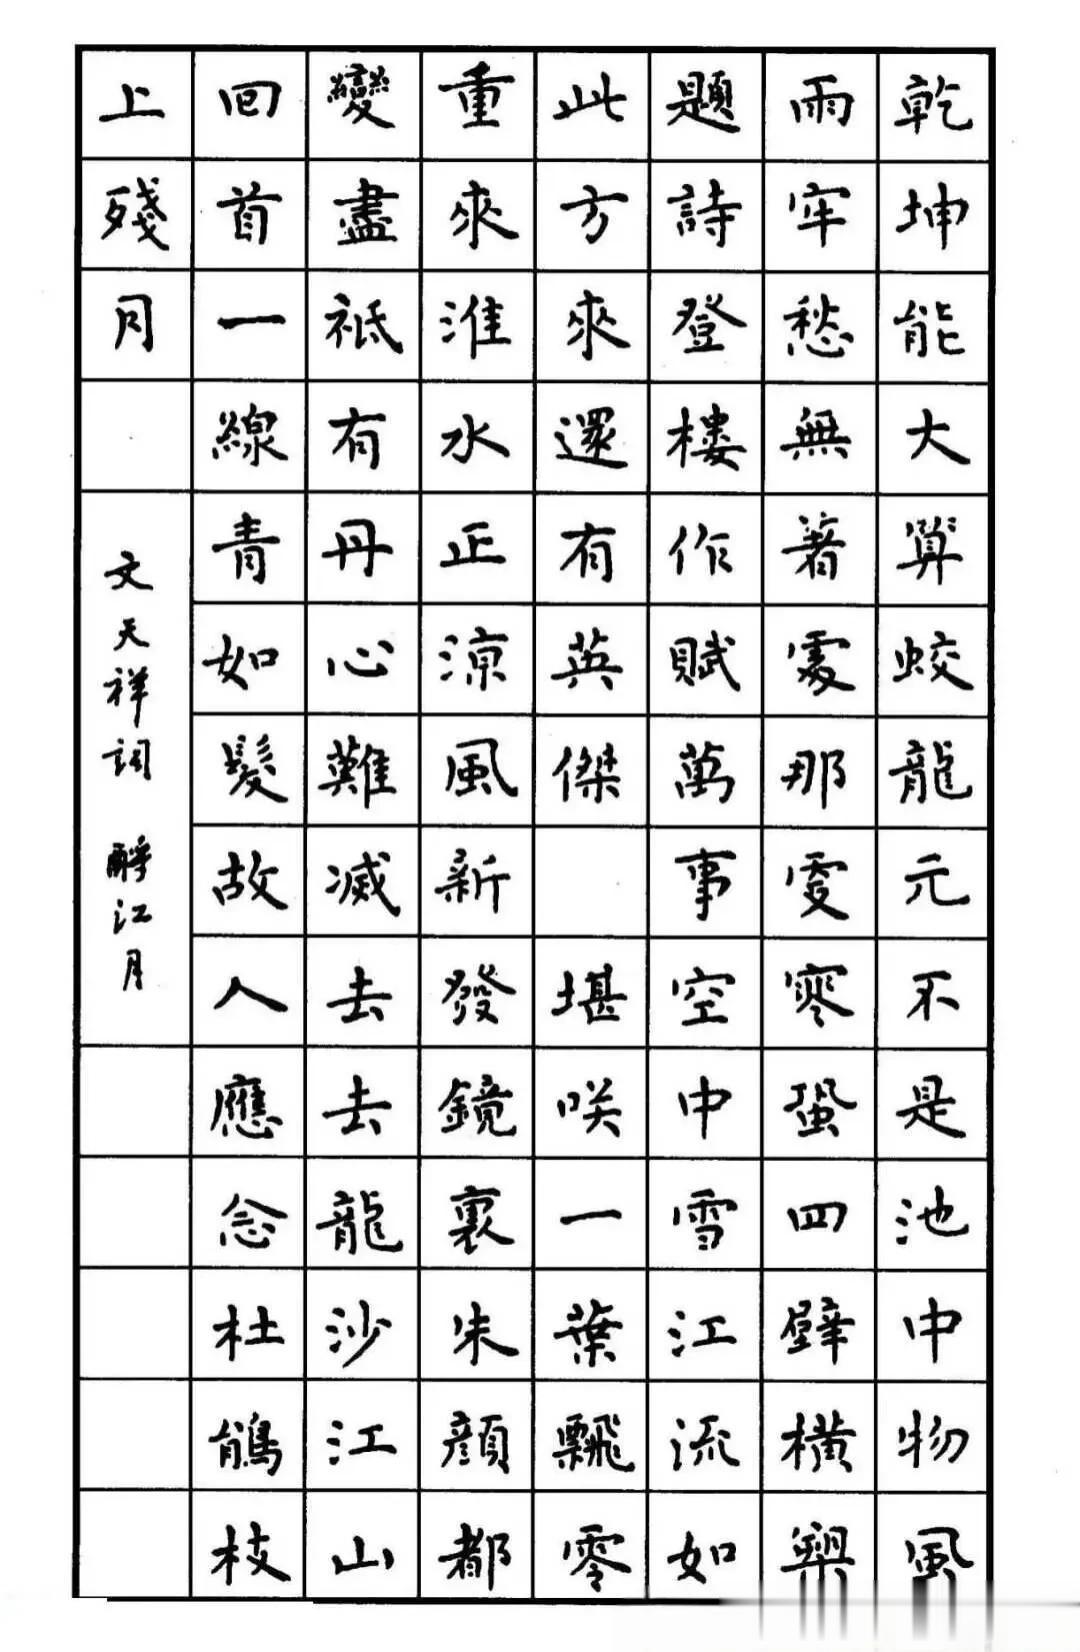 乾坤能大算蛟龍元不是池中物風
雨牢愁無著處那更寒蛩四壁橫槊
題詩登樓作賦萬事空中雪江流如
此方來還有英傑 堪咲一葉飄零
重來淮水正涼風新發鏡裏朱顏都
變盡祗有丹心難滅去去龍沙江山
回首一線青如髮故人應念杜鵑枝
上殘月
文天祥詞 酹江月